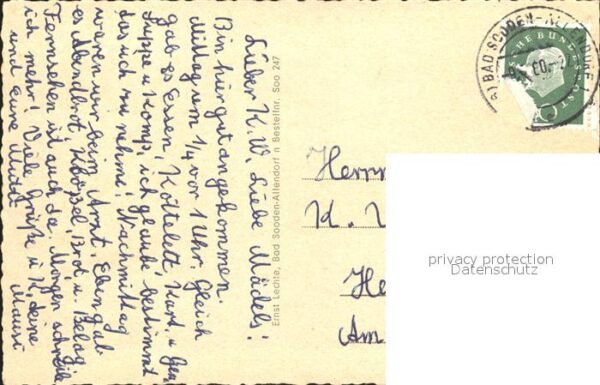 Lieber K.W. Liebe Mädels!
Bin hier gut angekommen.
Mittag um 1/4 vor 1 Uhr. Gleich
gab es Essen, Kottelett, Kart. u
Suppe u Komp. ich glaube bestimmt
das ich zu nehme! Nachmittag
waren wir beim Arzt. Eben gab
es Abendbrot, Brot, u. Belag
Fernsehen ist auch da. Morgen schreibe
ich mehr! Viele Grüße u K. deine
und Eure Mutti
Mausi
Ernst Lechte, Bad Sooden-Allendorf n Bestellnr. Soo 247
BAD SOODEN-ALLENDORF
DEUTSCHE BUNDESPOST
Herrn
K.
He
Am
privacy protection
Datenschutz